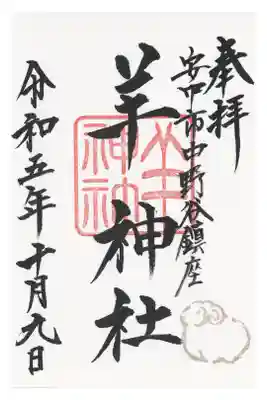 奉拝
安中市中野谷鎮座
羊神社
令和五年十月九日
羊神社